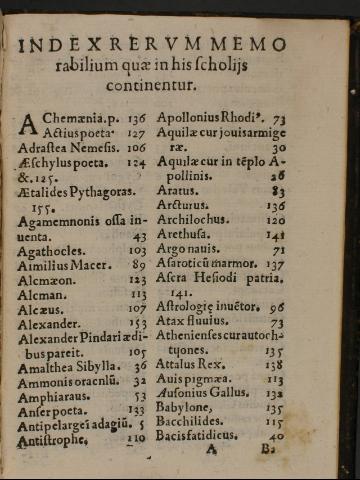 INDEX RERVM MEMO
rabilium quæ in his scholijs
continentur.
AChemænia. p. 136
Actius poeta. 127
Adrastea Nemesis. 106
Æschylus poeta. 124
&. 125.
Ætalides Pythagoras.
155.
Agamemnonis ossa in-
uenta. 43
Agathocles. 103
Aimilius Macer. 89
Alcmæon. 123
Alcman. 113
Alcæus. 107
Alexander. 153
Alexander Pindari ædi-
bus pareit. 105
Amalthea Sibylla. 36
Ammonis oraculū. 32
Amphiaraus. 53
Anser poeta. 133
Antipelargei adagiū. 5
Antistrophe. 110
Apollonius Rhodiꝰ. 73
Aquilæ cur jouis armige
ræ. 30
Aquilæ cur in tēplo A-
pollinis. 26
Aratus. 83
Arcturus. 136
Archilochus. 120
Arethusa. 141
Argonauis. 71
Asaroticū marmor. 137
Ascra Hesiodi patria.
141.
Astrologię inuētor. 96
Atax fluuius. 73
Athenienses cur autoch-
tyones. 135
Attalus Rex. 138
Auis pigmæa. 113
Ausonius Gallus. 132
Babylone, 135
Bacchilides. 115
Bacis fatidicus. 40
A Ba